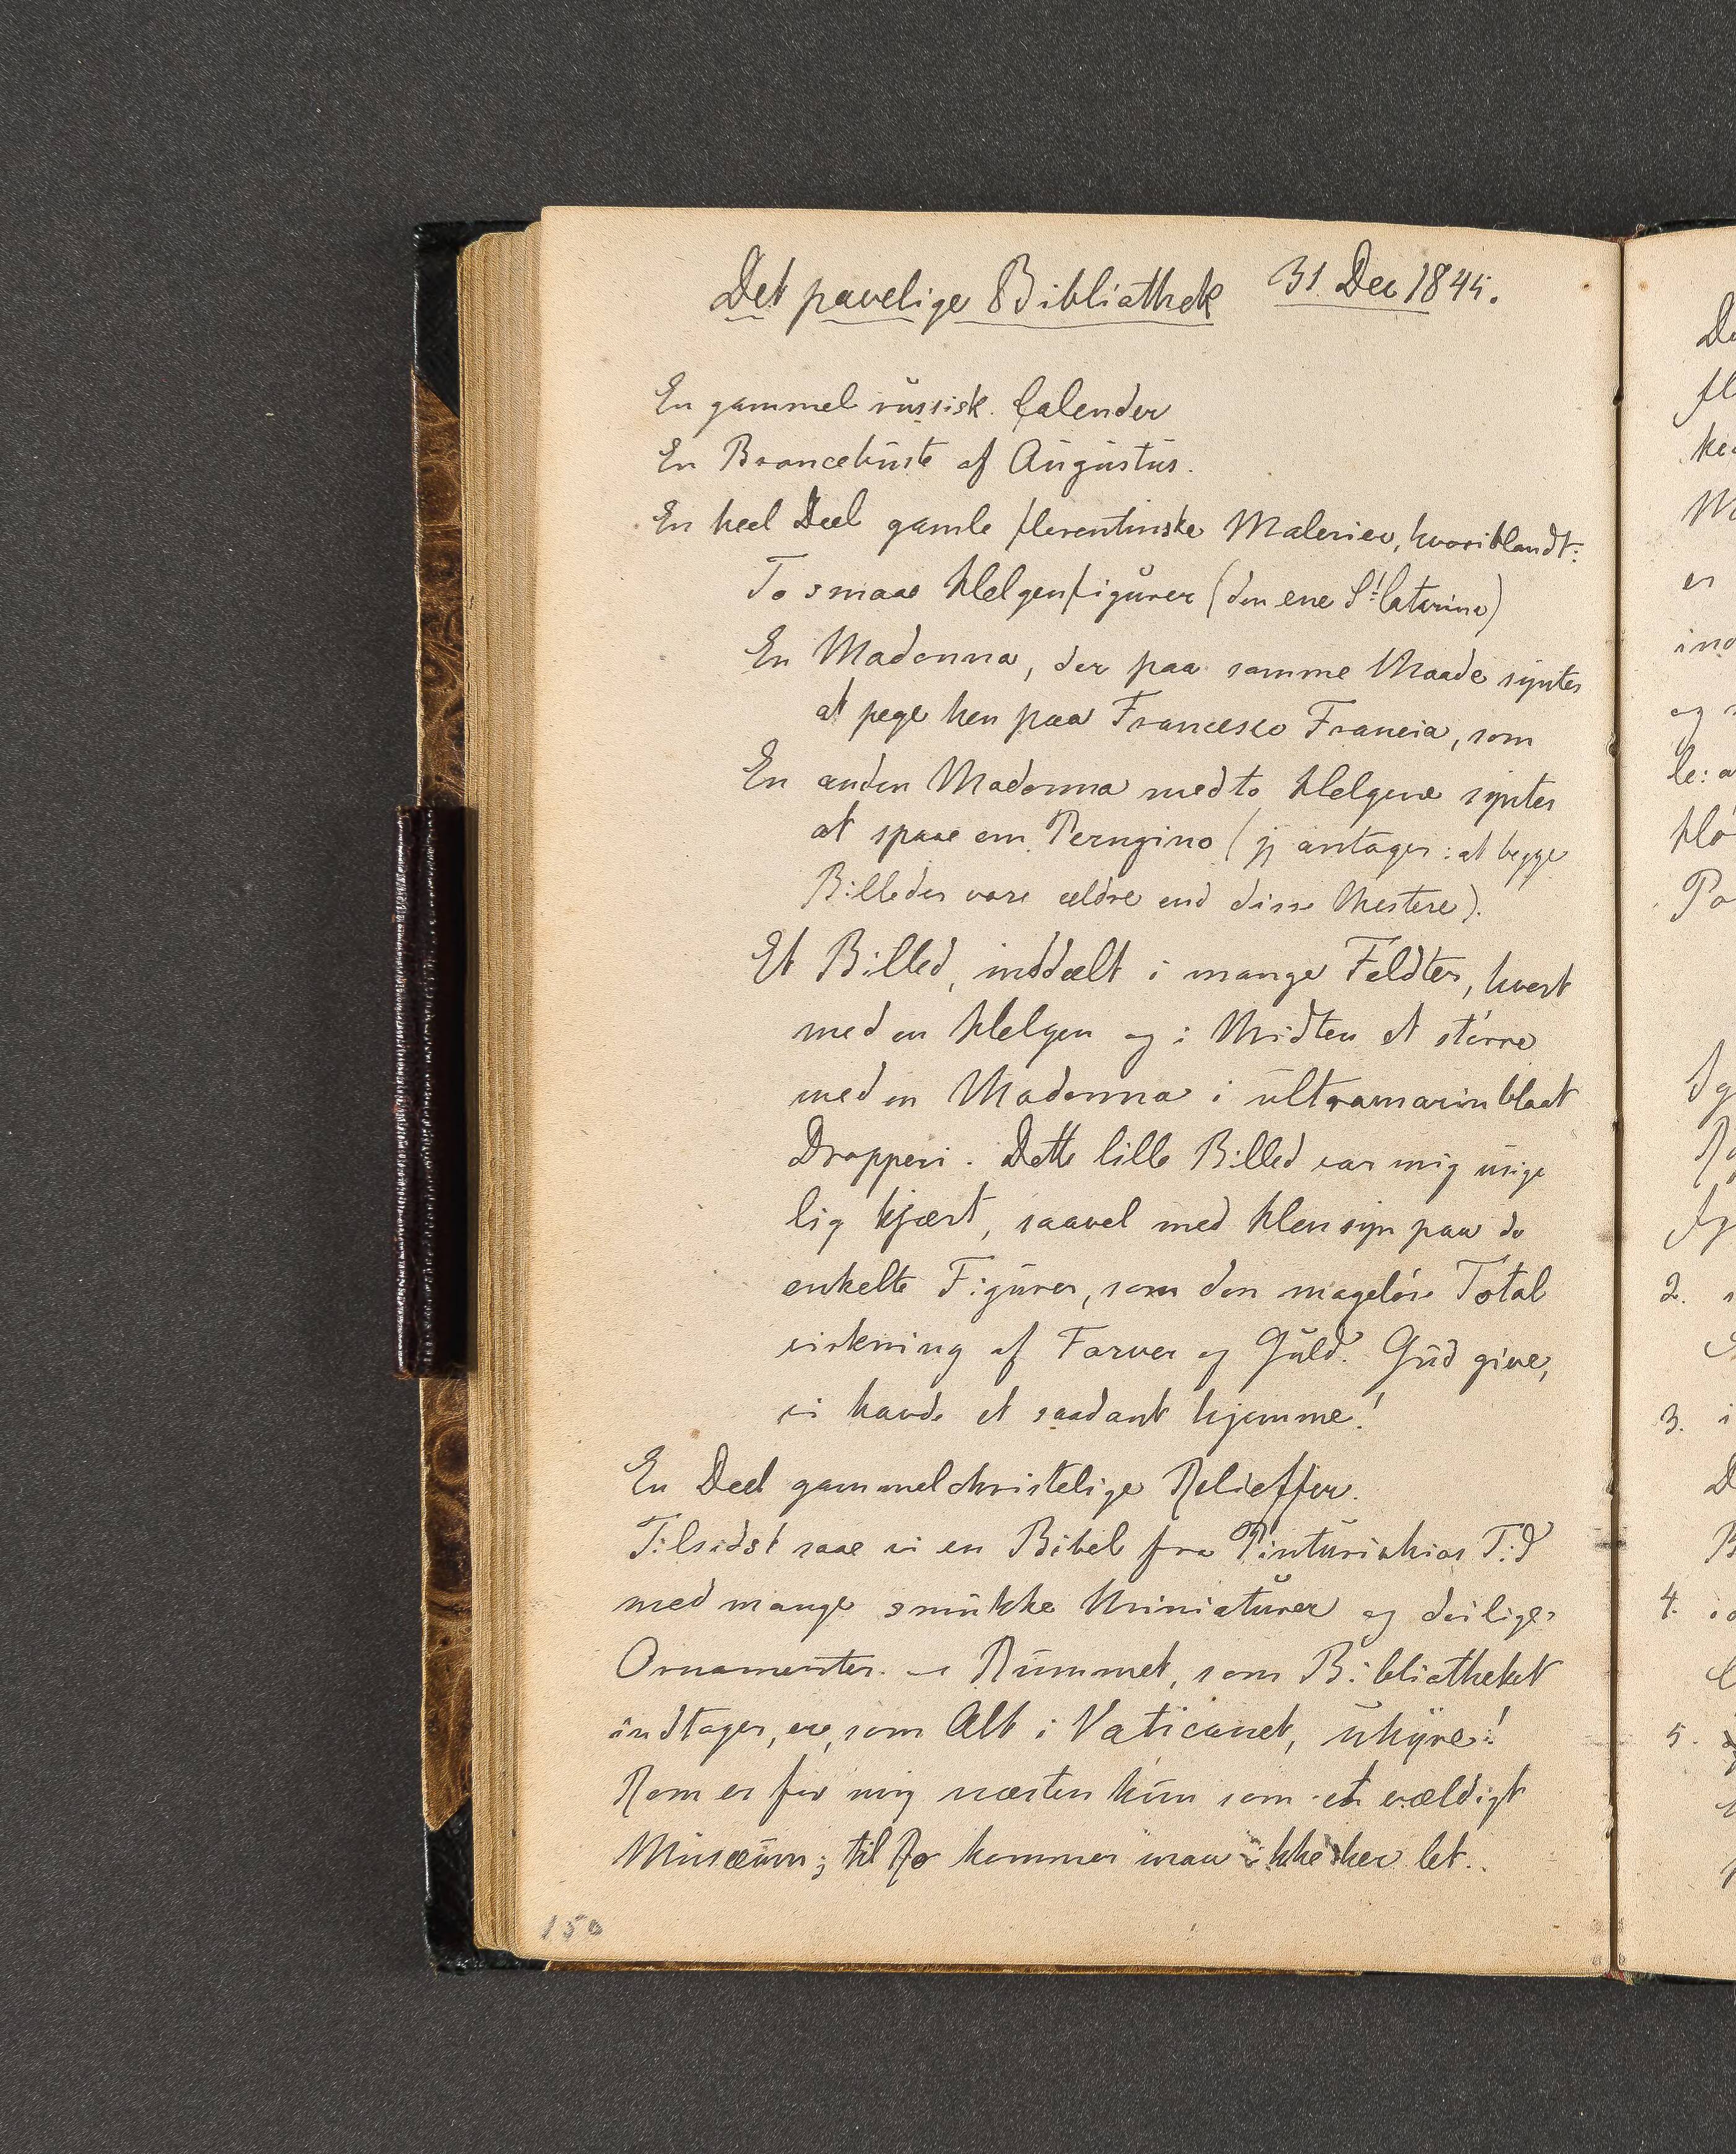 Det pavelige Bibliothek 31 Dec 1845.
En gammel russisk Calender
En Broncebuste af Augustus.
En heel Deel gamle florentinske Malerier, hvoriblandt:
To smaae Helgenfigurer (den ene St. Catarina)
En Madonna, der paa samme Maade syntes
at pege hen paa Francesco Francia, som
En anden Madonna med to Helgene syntes
at spaae om Perugino (jeg antager: at begge
Billeder vare ældre end disse Mestere).
Et Billed, inddælt i mange Feldter, hvert
med en Helgen og i Midten et större
med en Madonna i ultramarinblaat
Drapperi. Dette lille Billed var mig usige
lig kjært, saavel med Hensyn paa de
enkelte Figurer, som den magelöse Total
virkning af Farver og Guld. Gud give,
vi havde et saadant hjemme!
En Deel gammelchristelige Relieffer.
Tilsidst saae vi en Bibel fra Pinturichios Tid
med mange smukke Miniaturer og deilige
Ornamenter. — Rummet, som Bibliotheket
indtager, er, som Alt i Vaticanet, uhyre!
Rom er for mig næsten kun som et vældigt
Musæum; til Ro kommer man ikke her let.
150
2.
3.
4.
5.